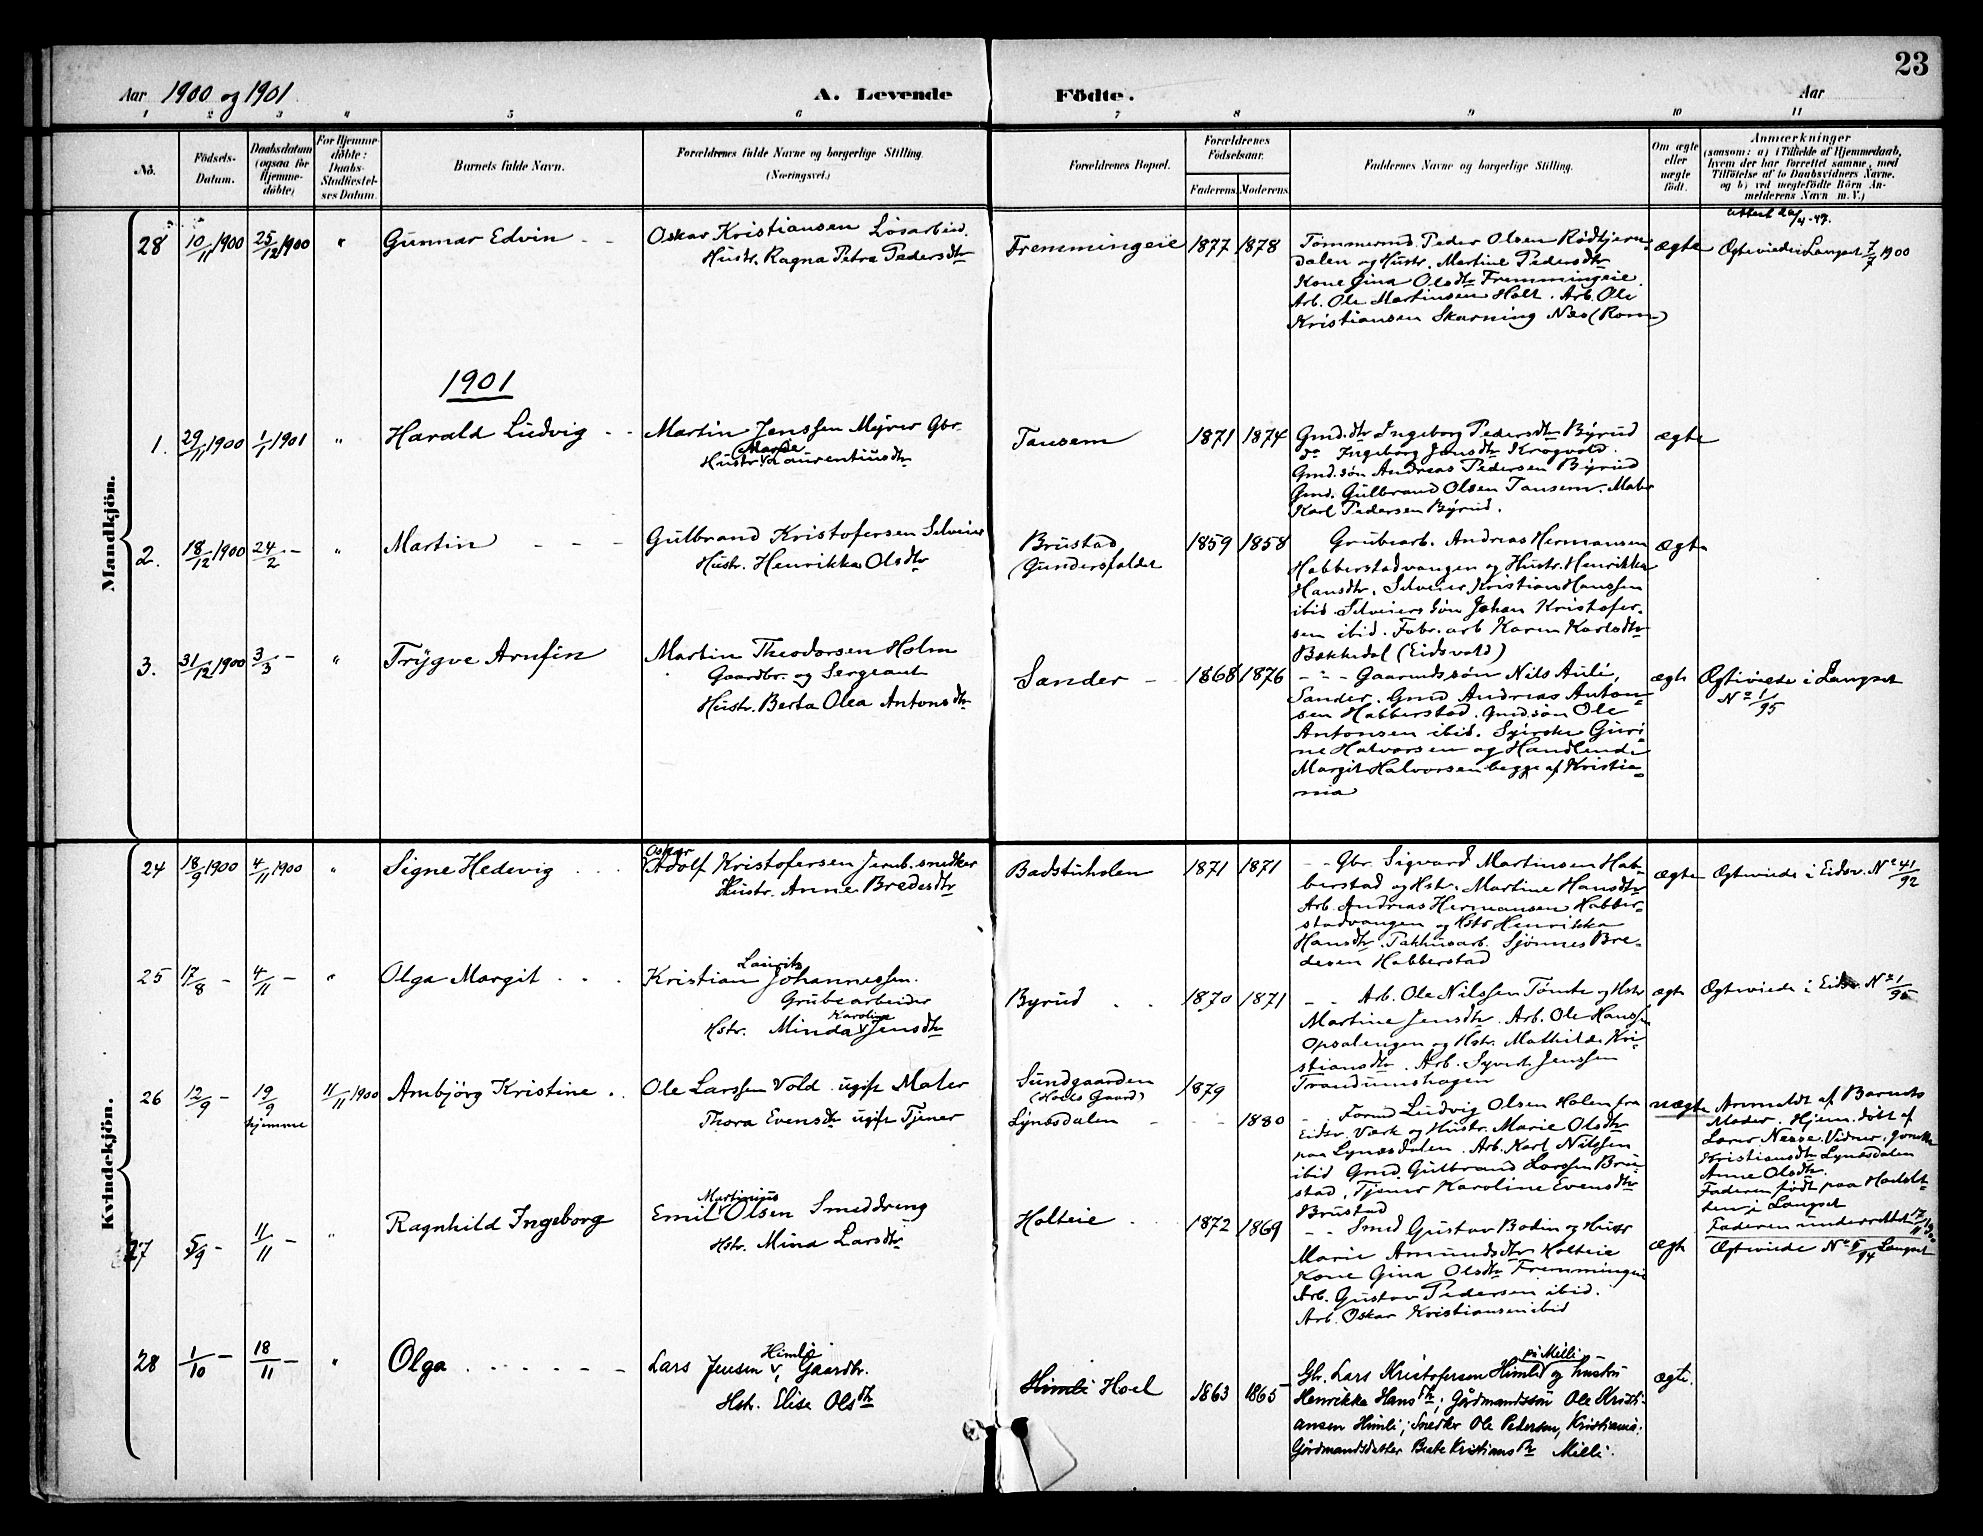 23
Aar 1900 og 1901
A. Levende Födte.
Aar
1 2 3 4 5 6 7 8 9 10 11
No.
Födsels-Datum.
Daabsdatum (ogsaa for Hjemmedöbte)
For Hjemmedöbte: Daabs-Stadfæstelses Datum.
Barnets fulde Navn.
Forældrenes fulde Navne og borgerlige Stilling. (Næringsvei.)
Forældrenes Bopæl.
Forældrenes Födselsaar.
Faderens. Moderens.
Faddernes Navne og borgerlige Stilling.
Om ægte eller uægte födt.
Anmærkninger
(saasom: a) i Tilfælde af Hjemmedaab, hvem der har forrettet samme, med Tilföielse af to Daabsvidners Navne, og b) ved uægtefödte Börn Anmelderens Navn m. V.)
Mandkjön.
28 10/11 1900 25/12 1900 " Gunnar Edvin
Oskar Kristiansen Lösarbeid.
Hustr. Ragna Petra Pedersdtr
Fremmingeie 1877 1878
Tömmermd. Peder Olsen Rödtjern-
dalen og Hustr. Martine Pedersdtr
Kone Gina Olsdtr Fremmingeie.
Arb. Ole Martinsen Holt. Arb. Ole
Kristiansen Skarning Næs (Rom.)
ægte
Attest 20/4-47.
Ægteviede i Langset 7/7 1900
1901
1. 29/11 1900 1/1 1901 " Harald Ludvig
Martin Jenssen Mejrer Gbr.
Hustr. Marie Laurentiusdtr
Tausem 1871 1874
Gmd.dtr Ingeborg Pedersdtr Byrud
do Ingeborg Jensdtr Krogvold.
Gmd.sön Andreas Pedersen Byrud
Gmd. Gulbrand Olsen Tausem. Maler
Karl Pedersen Byrud.
ægte
2. 18/12 1900 24/2 - " Martin
Gulbrand Kristofersen Selveier
Hustr. Henrikka Olsdtr
Brustad
(Gundersfaldet
1859 1858
Grubearb. Andreas Hermansen
Habberstadvangen og Hustr. Henrikka
Hansdtr. Selveier Kristian Hanssen
ibid. Selveiers Sön Johan Kristofer-
sen ibid. Fabr. arb Karen Karlsdtr
Bakkedal (Eidsvold)
ægte
3. 31/12 1900 3/3 - " Trygve Arnfin
Martin Theodorsen Holm
Gaardbr. og Sergeant
Hustr. Berta Olea Antonsdtr
Sander 1868 1876
Gaarmdssön Nils Auli,
Sander. Gmd Andreas Anton-
sen Habberstad. Gmd.sön Ole
Antonsen ibid. Syerske Guri-
ne Halvorsen og Handlende
Margit Halvorsen begge af Kristia-
nia
ægte
Ægteviede i Langset
No 1/95
Kvindekjön.
24 18/9 1900 4/11 1900 " Signe Hedevig
Oskar
Adolf Kristofersen Jernb. snedker
Hustr. Anne Bredesdtr
Badstuholen 1871 1871
Gbr. Sigvard Martinsen Hab-
berstad og Hstr. Martine Hansdtr
Arb. Andreas Hermansen Habber-
stadvangen og Hstr Henrikka
Hansdtr. Pakhusarb. Sjönnes Bre-
desen Habberstad
ægte
Ægteviede i Eidsv. No 41/92
25 17/8 - 4/11 - " Olga Margit
Lauritz
Kristian Johannessen.
Grubearbeider
Karoline
Hstr. Minda Jensdtr
Byrud 1870 1871
Arb. Ole Nilssen Tömte og Hstr
Martine Jensdtr. Arb. Ole Hanssen
Opsalengen og Hstr. Mathilde Kri-
stiansdtr. Arb. Syvert Jenssen
Trandumshagen
ægte
Ægteviede i Eidsv. No 1/95
26 12/9 - 19/9 hjemme 11/11 1900 Ambjörg Kristine
Ole Larssen Vold ugift Maler
Thora Evensdtr ugift Tjener
Sundgaarden
(Hoels Gaard)
Lynæsdalen
1879
1880
Formd Ludvig Olsen Holen fra
Eidsv. Værk og Hustr. Marie Olsdtr
paa Lynæsdalen. Arb. Karl Nilssen
ibid Gmd Gulbrand Larssen Bru-
stad, Tjener Karoline Evensdtr
Brustad
uægte
Anmeldt af Barnets
Moder. Hjem.döbt af
Lærer Nesse. Vidner:
Kristiansdtr Lynæsdalen
Anne Olsdtr.
Faderen födt paa
i Langset
Faderen underrettet 17/11 1900
27 5/9 - 11/11 - " Ragnhild Ingeborg
Martinius
Emil Olsen Smeddreng
Hstr. Mina Larsdtr
Holteie 1872 1869
Smed Gustav Bodin og Hustr
Marie Amundsdtr Holteie
Kone Gina Olsdtr Fremmingeie
Arb. Gustav Pedersen ibid.
Arb. Oskar Kristiansen ibid
ægte
Ægteviede No 5/94 Langset
28 1/10 - 18/11 - " Olga
Himli
Lars Jensen, Gaardbr.
Hstr. Elise Olsdtr
Himli Hoel 1863 1865
på Milli
Gbr. Lars Kristofersen Himli og hustru
Henrikka Hansdtr; Gårdmandssön Ole Kristi-
ansen Himli; Snedker Ole Pedersen, Kristiania;
Gårdmandsdatter Beate Kristiansdtr Milli.
ægte.